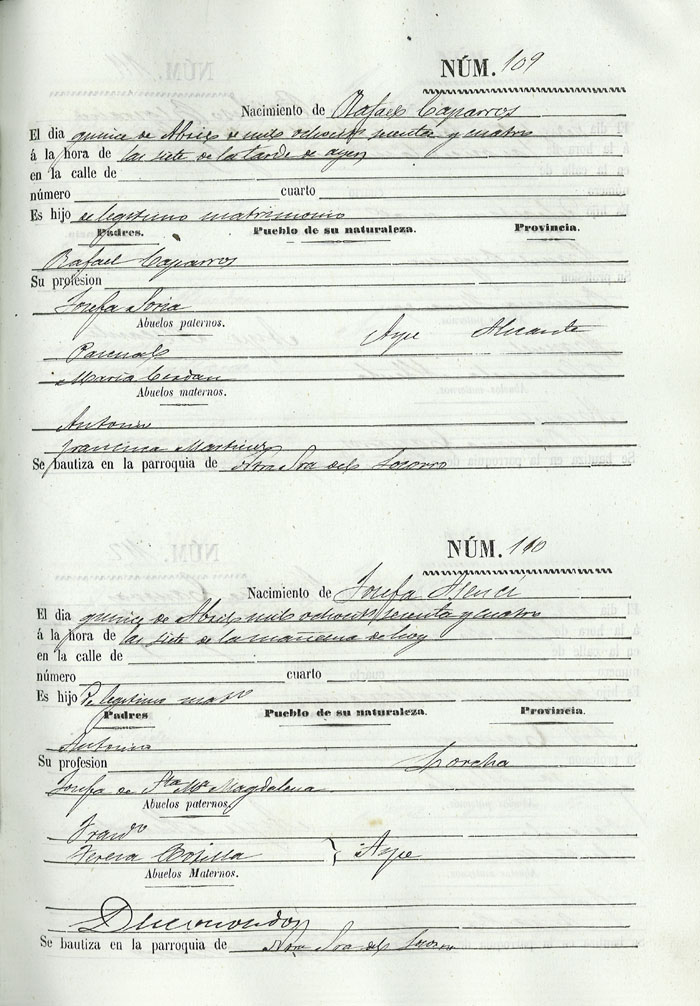 NÚM. 109
Nacimiento de Rafael Caparros
El dia quince de Abril de mil ochocts sesenta y cuatro
á la hora de las siete de la tarde de ayer
en la calle de
número cuarto
Es hijo de legitimo matrimonio
Padres. Pueblo de su naturaleza. Provincia.
Rafael Caparros
Su profesion
Josefa Soria
Abuelos paternos.
Aspe Alicante
Pascual
Maria Cerdan
Abuelos maternos.
Antonio
Francisca Martinez
Se bautiza en la parroquia de Ntra Sra del Socorro
NÚM. 110
Nacimiento de Josefa Asenci
El dia quince de Abril mil ochocts sesenta y cuatro
á la hora de las siete de la mañana de hoy
en la calle de
número cuarto
Es hijo De legitimo matro
Padres Pueblo de su naturaleza. Provincia.
Antonio
Su profesion Lorcha
Josefa de Sta Ma Magdalena
Abuelos paternos.
Franco
Teresa Botella } Aspe
Abuelos Maternos.
Desconocidos
Se bautiza en la parroquia de Ntra Sra del Socorro